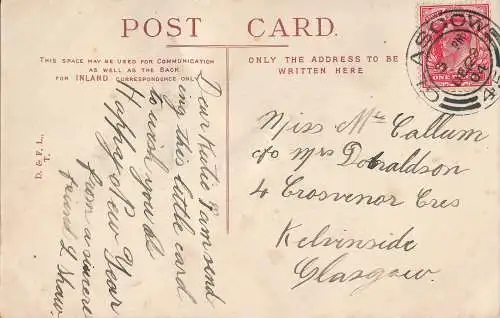 POST CARD.
THIS SPACE MAY BE USED FOR COMMUNICATION
AS WELL AS THE BACK
FOR INLAND CORRESPONDENCE ONLY.
ONLY THE ADDRESS TO BE
WRITTEN HERE
Dear Katie I am send
ing this little card
to wish you a
Happy New Year
from a sincere
friend L Shaw.
D. & F., L.,
T.
GLASGOW
4
Miss Mc Callum
c/o Mrs Donaldson
4 Grosvenor Cres
Kelvinside
Glasgow.